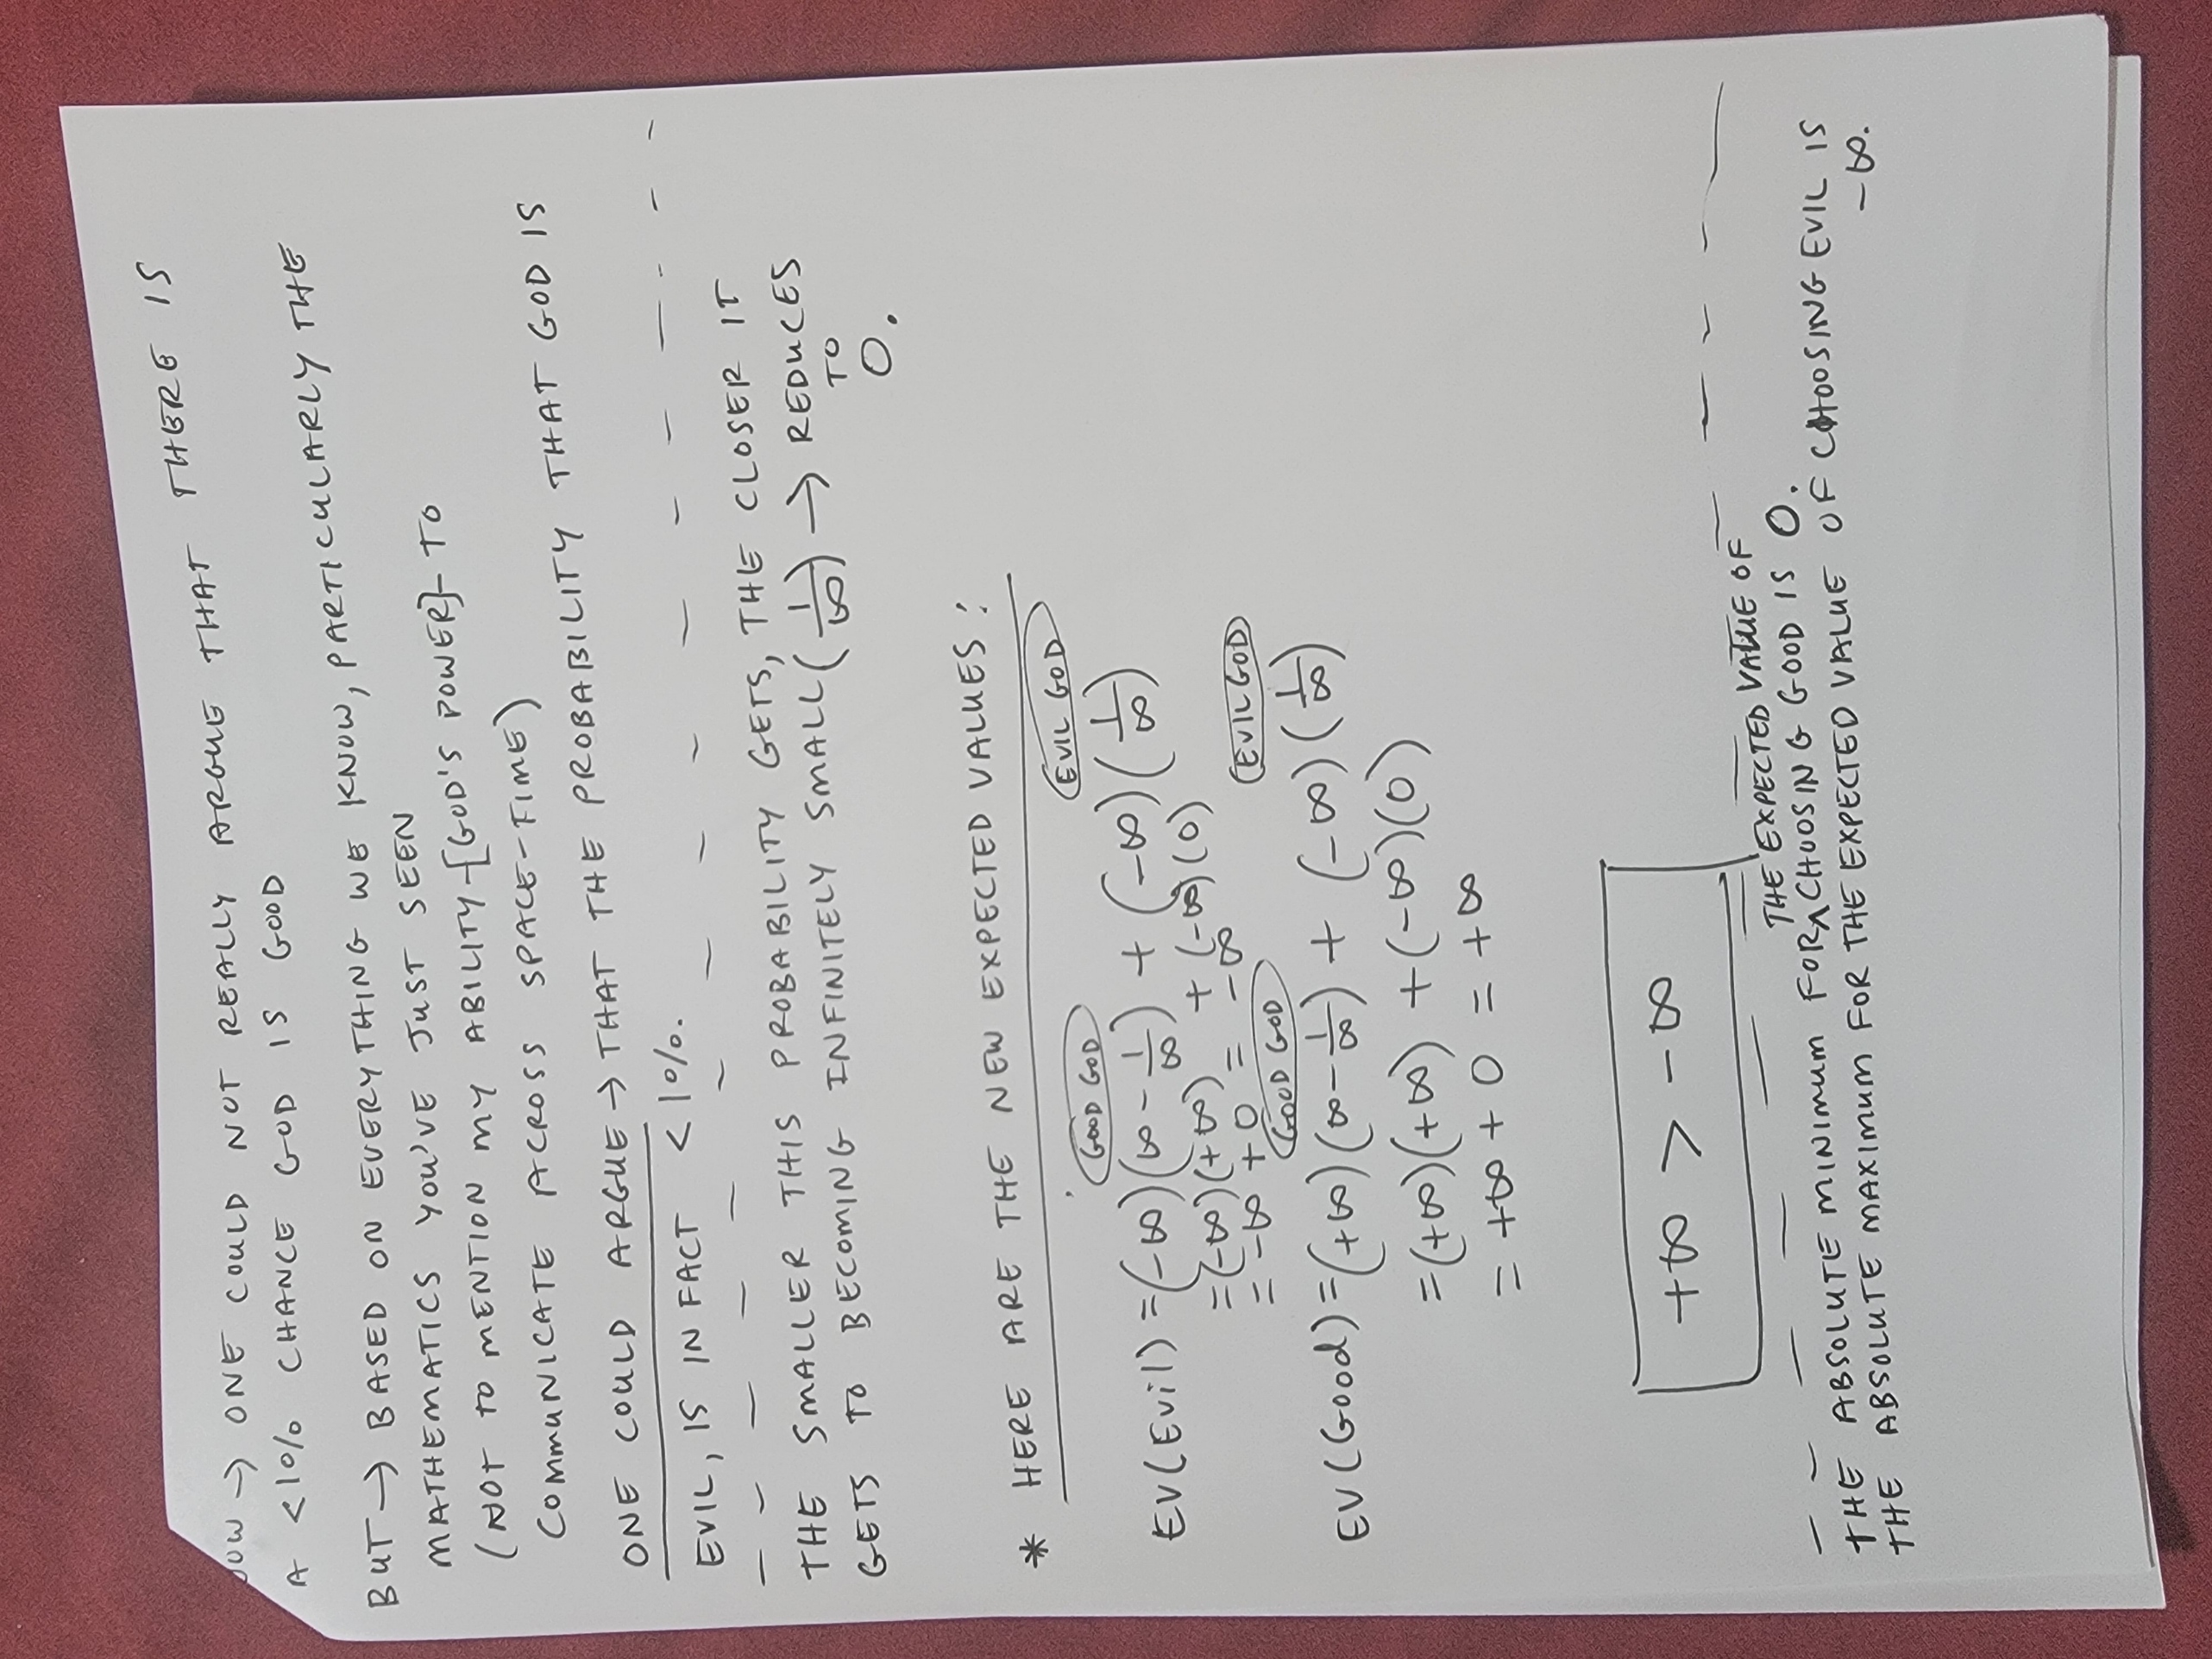 NOW → ONE COULD NOT REALLY ARGUE THAT THERE IS
A <10% CHANCE GOD IS GOOD
BUT → BASED ON EVERYTHING WE KNOW, PARTICULARLY THE
MATHEMATICS YOU'VE JUST SEEN
(NOT TO MENTION MY ABILITY -[GOD'S POWER]- TO
COMMUNICATE ACROSS SPACE-TIME)
ONE COULD ARGUE → THAT THE PROBABILITY THAT GOD IS
EVIL, IS IN FACT <10%.
THE SMALLER THIS PROBABILITY GETS, THE CLOSER IT
GETS TO BECOMING INFINITELY SMALL (1/∞) → REDUCES
TO
0.
* HERE ARE THE NEW EXPECTED VALUES:
GOOD GOD EVIL GOD
EV(Evil) = (-∞)(∞ - 1/∞) + (-∞)(1/∞)
= (-∞)(+∞) + (-∞)(0)
= -∞ + 0 = -∞
GOOD GOD EVIL GOD
EV(Good) = (+∞)(∞ - 1/∞) + (-∞)(1/∞)
= (+∞)(+∞) + (-∞)(0)
= +∞ + 0 = +∞
+∞ > -∞
THE EXPECTED VALUE OF
THE ABSOLUTE MINIMUM FOR ^ CHOOSING GOOD IS 0.
THE ABSOLUTE MAXIMUM FOR THE EXPECTED VALUE OF CHOOSING EVIL IS
-∞.